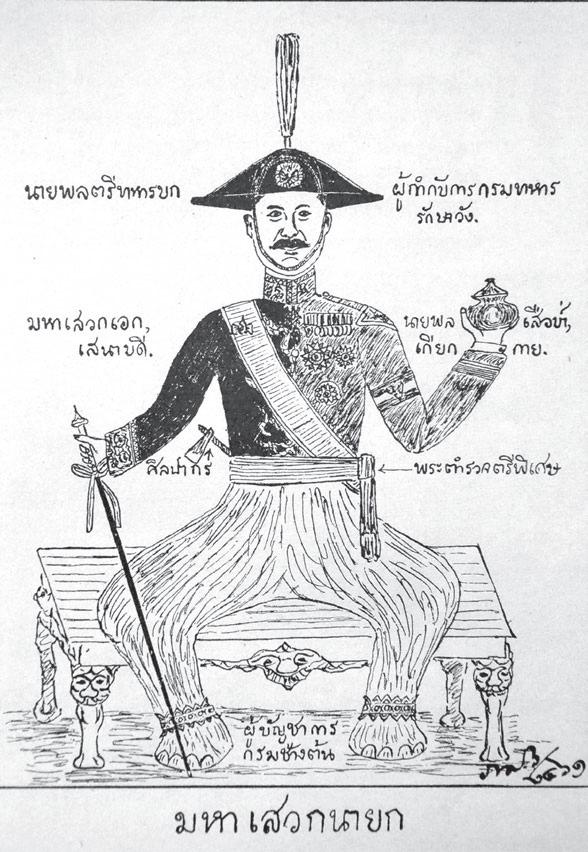 นายพลตรีทหารบก
ผู้กำกับการกรมทหาร
รักษาวัง.
มหาเสวกเอก,
เสนาบดี.
นายพล เสือป่า,
เกียกกาย.
ศิลปากร
พระตำรวจตรีพิเศษ
ผู้บัญชาการ
กรมช้างต้น
๒๔๖๑
มหาเสวกนายก